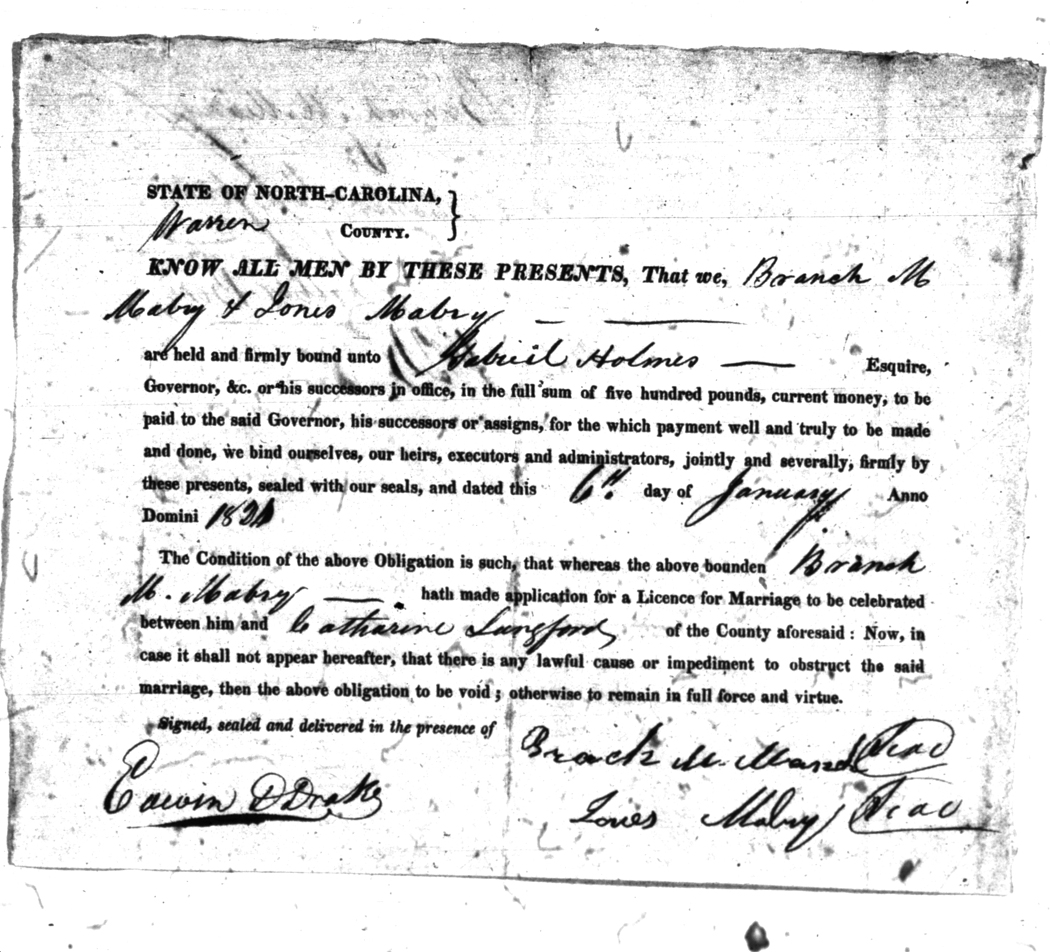 STATE OF NORTH-CAROLINA,
Warren COUNTY.
KNOW ALL MEN BY THESE PRESENTS, That we, Branch M
Mabry & Jones Mabry
are held and firmly bound unto Gabriel Holmes Esquire,
Governor, &c. or his successors in office, in the full sum of five hundred pounds, current money, to be
paid to the said Governor, his successors or assigns, for the which payment well and truly to be made
and done, we bind ourselves, our heirs, executors and administrators, jointly and severally, firmly by
these presents, sealed with our seals, and dated this 6th day of January Anno
Domini
The Condition of the above Obligation is such, that whereas the above bounden Branch
M. Mabry hath made application for a Licence for Marriage to be celebrated
between him and Catharine Langford of the County aforesaid : Now, in
case it shall not appear hereafter, that there is any lawful cause or impediment to obstruct the said
marriage, then the above obligation to be void ; otherwise to remain in full force and virtue.
Signed, sealed and delivered in the presence of
Branch M. Seal
Edwin D Drake
Jones Mabry Seal